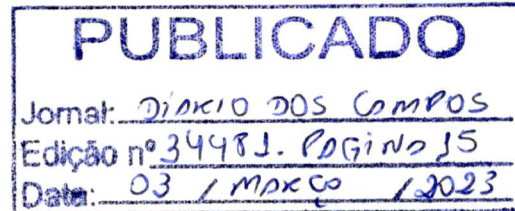 PUBLICADO
Jornal: DIÁRIO DOS CAMPOS
Edição nº 34481. PAGINA 15
Data: 03 / MARCO / 2023